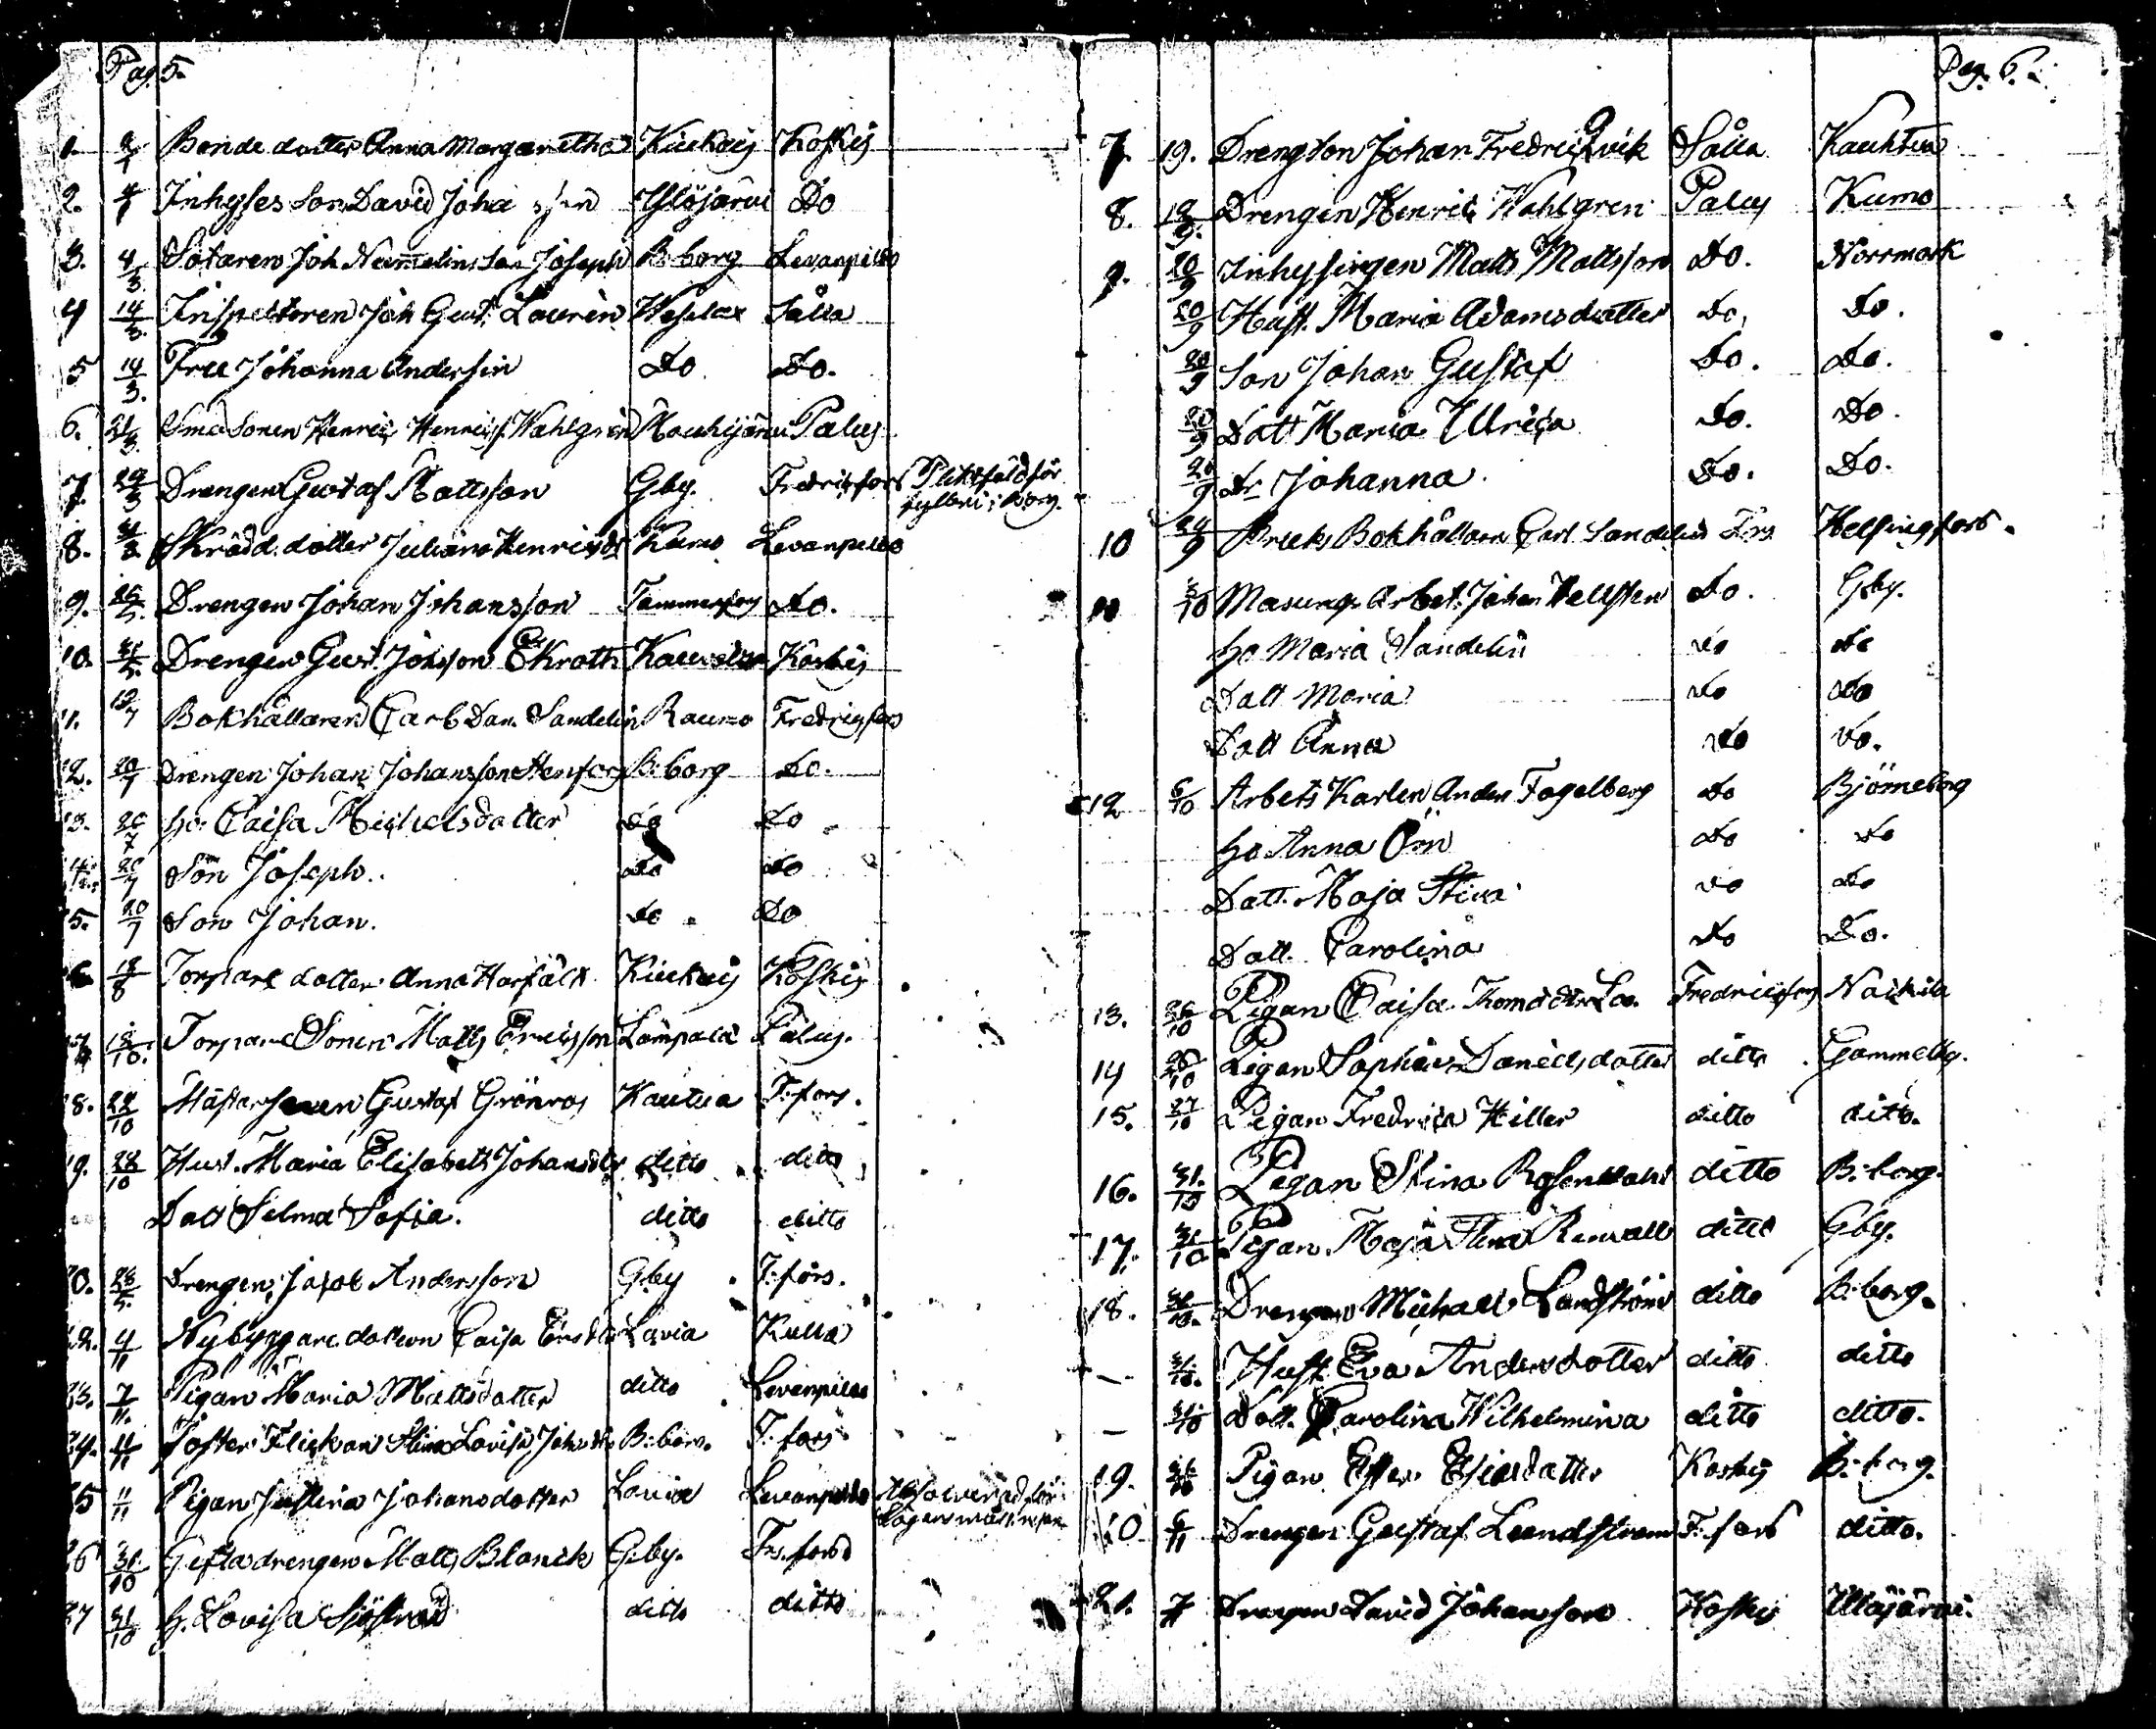 Pag. 5.
1. 2/1 Bonde dotter Anna Margaretha Kiukais Koskis
2. 4/1 Inhyses Son David Joha son Ylöjärvi Do
3. 4/3. Sotaren Joh Nummelins Son Joseph B:borg Levanpelto
4 14/3. Inspectoren Joh Gust. Laurèn Sälla
5 14/3. Fru Johanna Do Do.
6. 21/3. Små Sonen Henric Henricss. Wahlgren Mouhijärvi Palus
7. 29/3 Drengen Gustaf Mattsson Gby. Fredricsfors Pliktfäld för
fylleri i B:borg.
8. Skrädd. dotter Juliana Henricsdr Kumo Levanpelto
9. 26/5. Drengen Johan Johansson Tammerfors Do.
10. 31/5. Drengen Gust. Johsson Ekroth Koskis
11. 12/7 Bokhållaren Carl Dan. Sandelin Raumo Fredricsfors
12. 20/7 Drengen Johan Johansson B:borg Do.
13. 20/7 Ho: Caisa Michelsdotter Do Do
14. 20/7 Son Joseph. Do Do
15. 20/7 Son Johan. Do Do
16 18/8 Torpare dotter Anna Harfält Kiukais Koskis
17 18/10. Torpare Sonen Matts Ericsson Lampala Palus.
18. 28/10 Mästersven Gustaf Grönros Kautua F:fors.
19. 28/10 Hust. Maria Elisabeth Johansdtr ditto ditto
Dott Selma Sofia. ditto ditto
20. 28/5. Drengen Jacob Andersson Gby F:fors.
22. 4/11 Nybyggare dottren Caisa Lavia Kulla
23. 7/11. Pigan Maria Mattsdotter ditto Levanpelto
24. 11/11 Foster Flickan Stina Lovisa B:borg. F:fors
25 11/11 Pigan Justina Johansdotter Lavia Levanpelto Absolverad för
Lägersmål
26 31/10 Gifta drengen Matts Blanck G:by. Fr:fors
27 31/10 H. Lovisa Sjöstrand ditto ditto
Pag. 6.
7. 19. Drengson Johan Fredric Qvik Sälla Kauhtua
8. 19/9. Drengen Henric Wahlgren Palus Kumo
9. 20/9 Inhysingen Matts Mattsson Do. Norrmark
20/9 Hust. Maria Adamsdotter Do, Do.
20/9 Son Johan Gustaf Do. Do.
20/9 Dott Maria Ulrica Do. Do.
20/9 Dr Johanna. Do. Do.
10 24/9 Bruks Bokhållaren Carl Sandelin Frs. Helsingfors.
11 3/10 Masungs Arbet. Johan Hellsten Do. Gby.
Ho Maria Sandelin Do Do
Dott Maria Do Do
Dott Anna Do Do.
12 6/10 Arbets Karlen Anders Fogelberg Do Björneborg
Ho Anna Örn Do Do
Dott. Maja Stina Do Do
Dott. Carolina Do Do.
13. 26/10 Pigan Caisa Fredricsfors Nackila
14 26/10 Pigan Sophia Danielsdotter ditto Gammelby.
15. 27/10 Pigan Fredrica Hiller ditto ditto.
16. 31./10 Pigan Stina Rosendahl ditto B:borg.
17. 31/10 Pigan Maja Stina Renvall ditto Gby.
18. 31/10. Drengen Michael Landström ditto B:borg.
— 31/10. Hust. Eva Andersdotter ditto ditto
— 31/10 Dott. Carolina Wilhelmina ditto ditto.
19. Pigan Ester Esiasdotter Koskis B:borg.
20 6/11 Drengen Gustaf Lundstrom F:fors ditto.
21. 7/11 Drengen David Johansson Koskis Ullöjärvi.